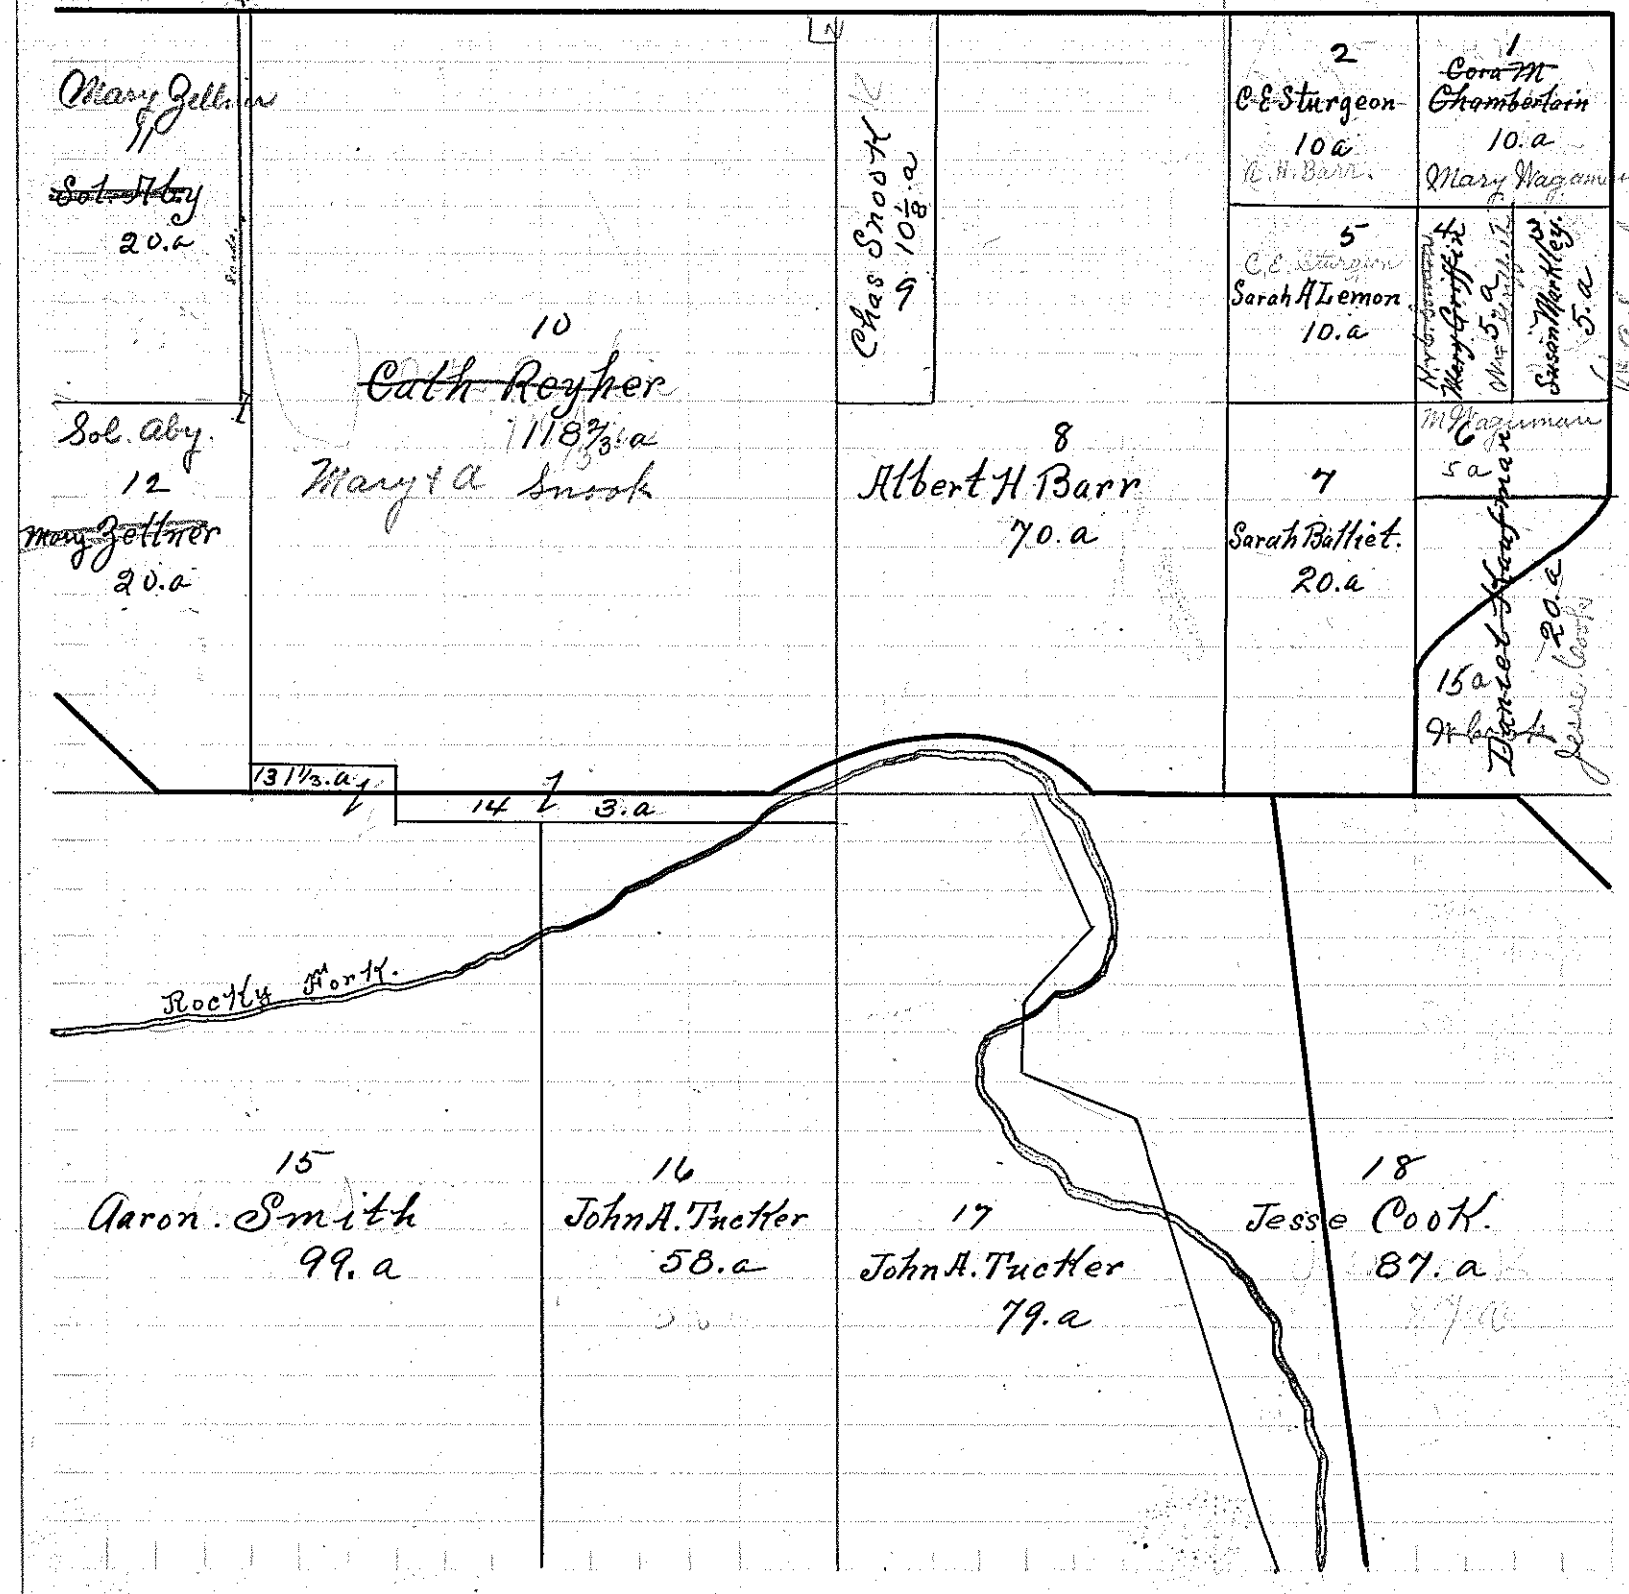 Mary Zellner
11
Sol. Aby
20.a
Sol. Aby.
12
Mary Zellner
20.a
10
Cath Reyher
118 2/3 a
Mary & A Snook
Chas Snook
9 10 1/8 a
8
Albert H Barr
70.a
2
C E Sturgeon
10 a
A. H. Barr.
1
Cora M
Chamberlain
10.a
Mary Wagaman
5
C. E. Sturgeon
Sarah A Lemon.
10.a
4
Mary Griffin
5.a
3
Susan Markley.
5.a
M Wagaman
6
5 a
7
Sarah Balliet.
20.a
Daniel Kaufman
20.a
Jesse Cook
15 a
13 1 1/3.a
14 3.a
Rocky Fork.
15
Aaron. Smith
99. a
16
John A. Tucker
58.a
17
John A. Tucker
79.a
18
Jesse Cook.
87. a